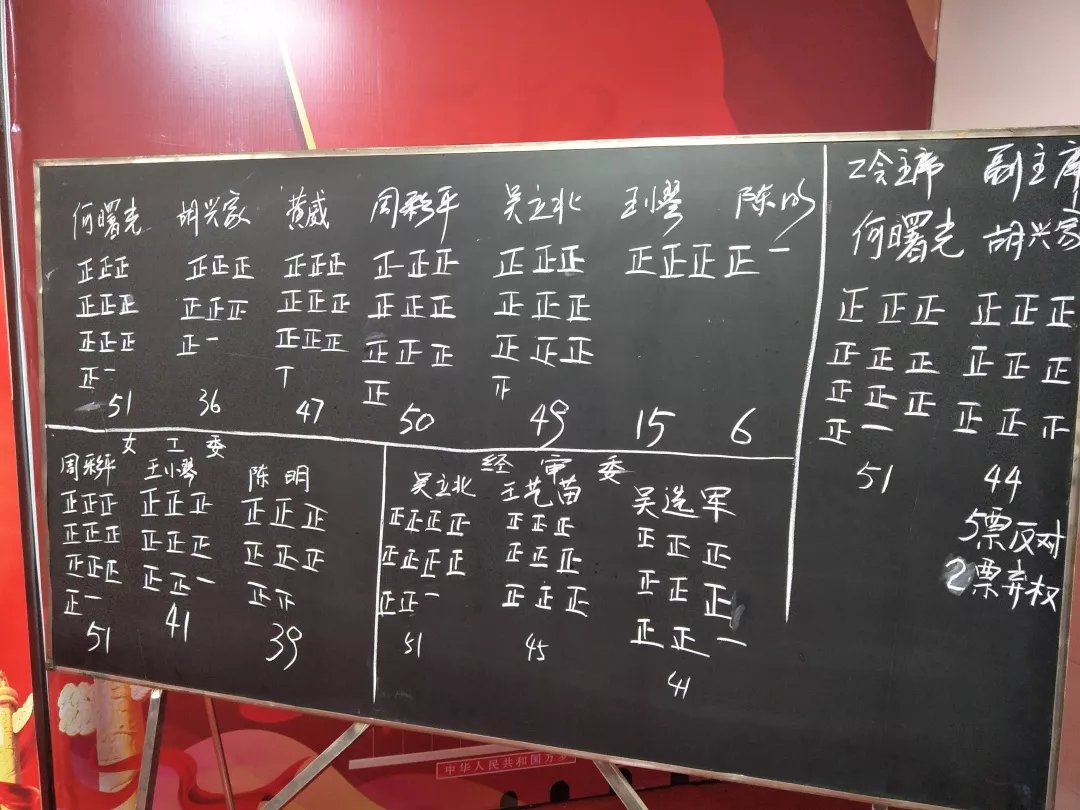 何曙光 胡兴家 黄威 周彩平 吴立北 王小琴 陈明
正正正 正正正 正正正 正正正 正正正 正正正 正一
正正正 正正正 正正正 正正正 正正正
正正正 正一 正正正 正正正 正正正
正一 丅 正 正
51 36 47 50 49 15 6
工会主席 副主席
何曙光 胡兴家
正正正 正正正
正正正 正正正
正正正 正正正
正一
51 44
5票反对
2票弃权
女工委
周彩平 王小琴 陈明
正正正 正正正 正正正
正正正 正正正 正正正
正正正 正正一 正正
正一
51 41 39
经审委
吴立北 王艺苗 吴选军
正正正正 正正正 正正正
正正正正 正正正 正正正
正正一 正正正 正正一
51 45 41
中华人民共和国万岁